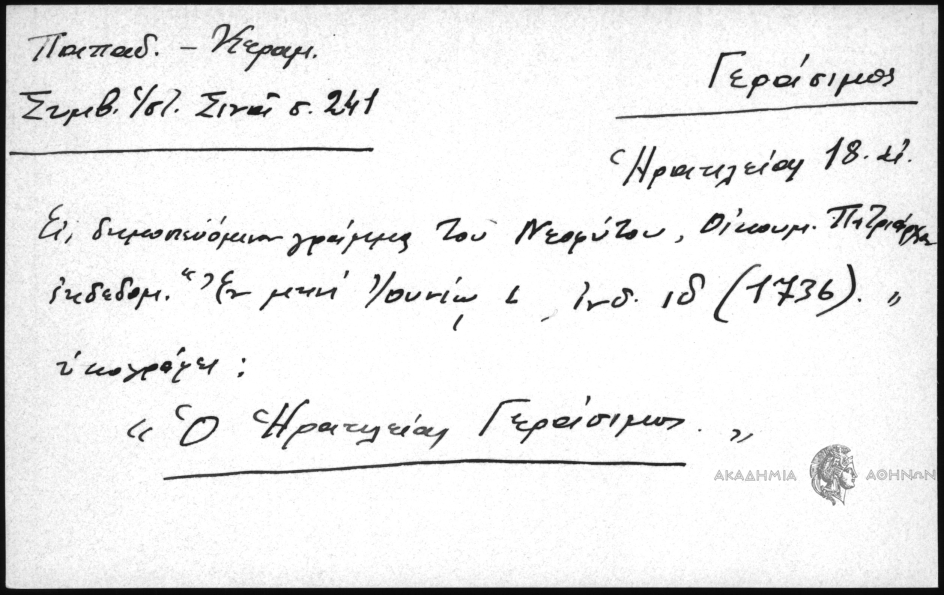 Παπαδ. - Κεραμ.
Συμβ. Ἱστ. Σινᾶ σ. 241
Γεράσιμος
Ἡρακλείας 18. αἰ.
Εἰς δημοσιευόμενον γράμμα τοῦ Νεοφύτου, Οἰκουμ. Πατριάρχου
ἐκδεδομ. "Ἐν μηνὶ Ἰουνίῳ ἰνδ. ιδ (1736). "
ὑπογράφει :
" Ὁ Ἡρακλείας Γεράσιμος. "
ΑΚΑΔΗΜΙΑ ΑΘΗΝΩΝ